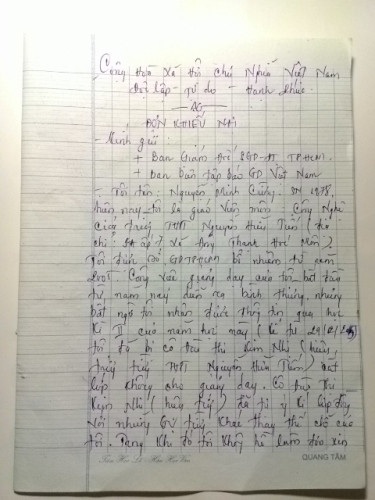 Cộng Hòa Xã Hội Chủ Nghĩa Việt Nam
Độc lập - Tự do - Hạnh phúc
ĐƠN KHIẾU NẠI
- Kính gửi :
+ Ban Giám Đốc SGD-ĐT TPHCM.
+ Ban biên tập Báo GD Việt Nam
- Tôi tên : Nguyễn Minh Cường : SN 1978,
hiện nay tôi là giáo viên môn : Công Nghệ
của trường THPT Nguyễn Hữu Tiến (địa
chỉ : ấp 7 Xã Đông Thạnh Hóc Môn)
Tôi được Sở GDTPHCM bổ nhiệm từ năm
2001. Công việc giảng dạy của tôi bắt đầu
từ năm này diễn ra bình thường, nhưng
bất ngờ tôi nhận được thông tin qua học
kì II của năm học này (kể từ
tôi đã bị cô Bùi Thị Kiện Nhi (hiệu
trưởng trường THPT Nguyễn Hữu Tiến) cắt
lớp không cho giảng dạy. Cô Bùi Thị
Kiện Nhi (hiệu trưởng) đã tự ý kí hợp đồng
với những GV trường khác thay thế chỗ của
tôi. Trong khi đó tôi không hề làm đơn xin
QUANG TÂM